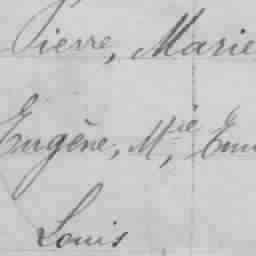 Pierre, Marie
Eugène, Mie, Em
Louis